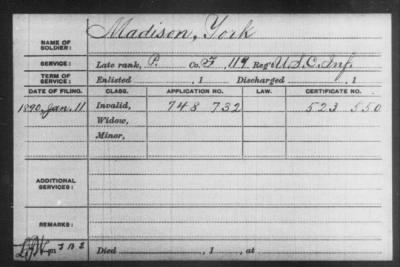 NAME OF SOLDIER: Madison, York
SERVICE: Late rank, P. Co. F, 119 Reg't U.S.C. Inf.
TERM OF SERVICE: Enlisted , 1 Discharged , 1
DATE OF FILING. CLASS. APPLICATION NO. LAW. CERTIFICATE NO.
1890, Jan. 11 Invalid, 748 732 523 550
Widow,
Minor,
ADDITIONAL SERVICES:
REMARKS:
Died , 1 , at